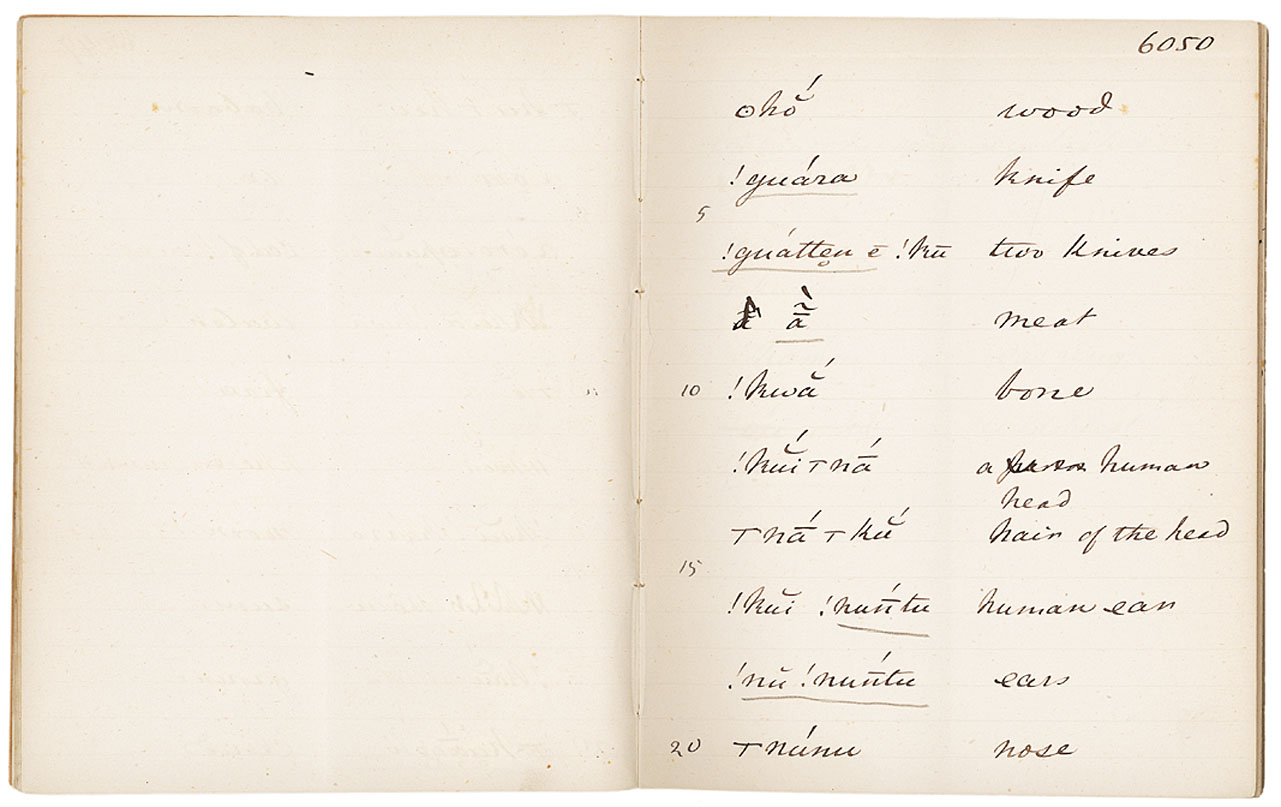 6050
ʘhŏ́ wood
!guára knife
5
!guátte̥n ē !kū two knives
ã̄̀ meat
10 !kwắ bone
!kŭ́i ⊤nā́ a human
head
⊤nā́ ⊤kŭ́ hair of the head
15
!kŭi !nuń̄tu human ear
!nŭ !nuń̄tu ears
20 ⊤núnu nose